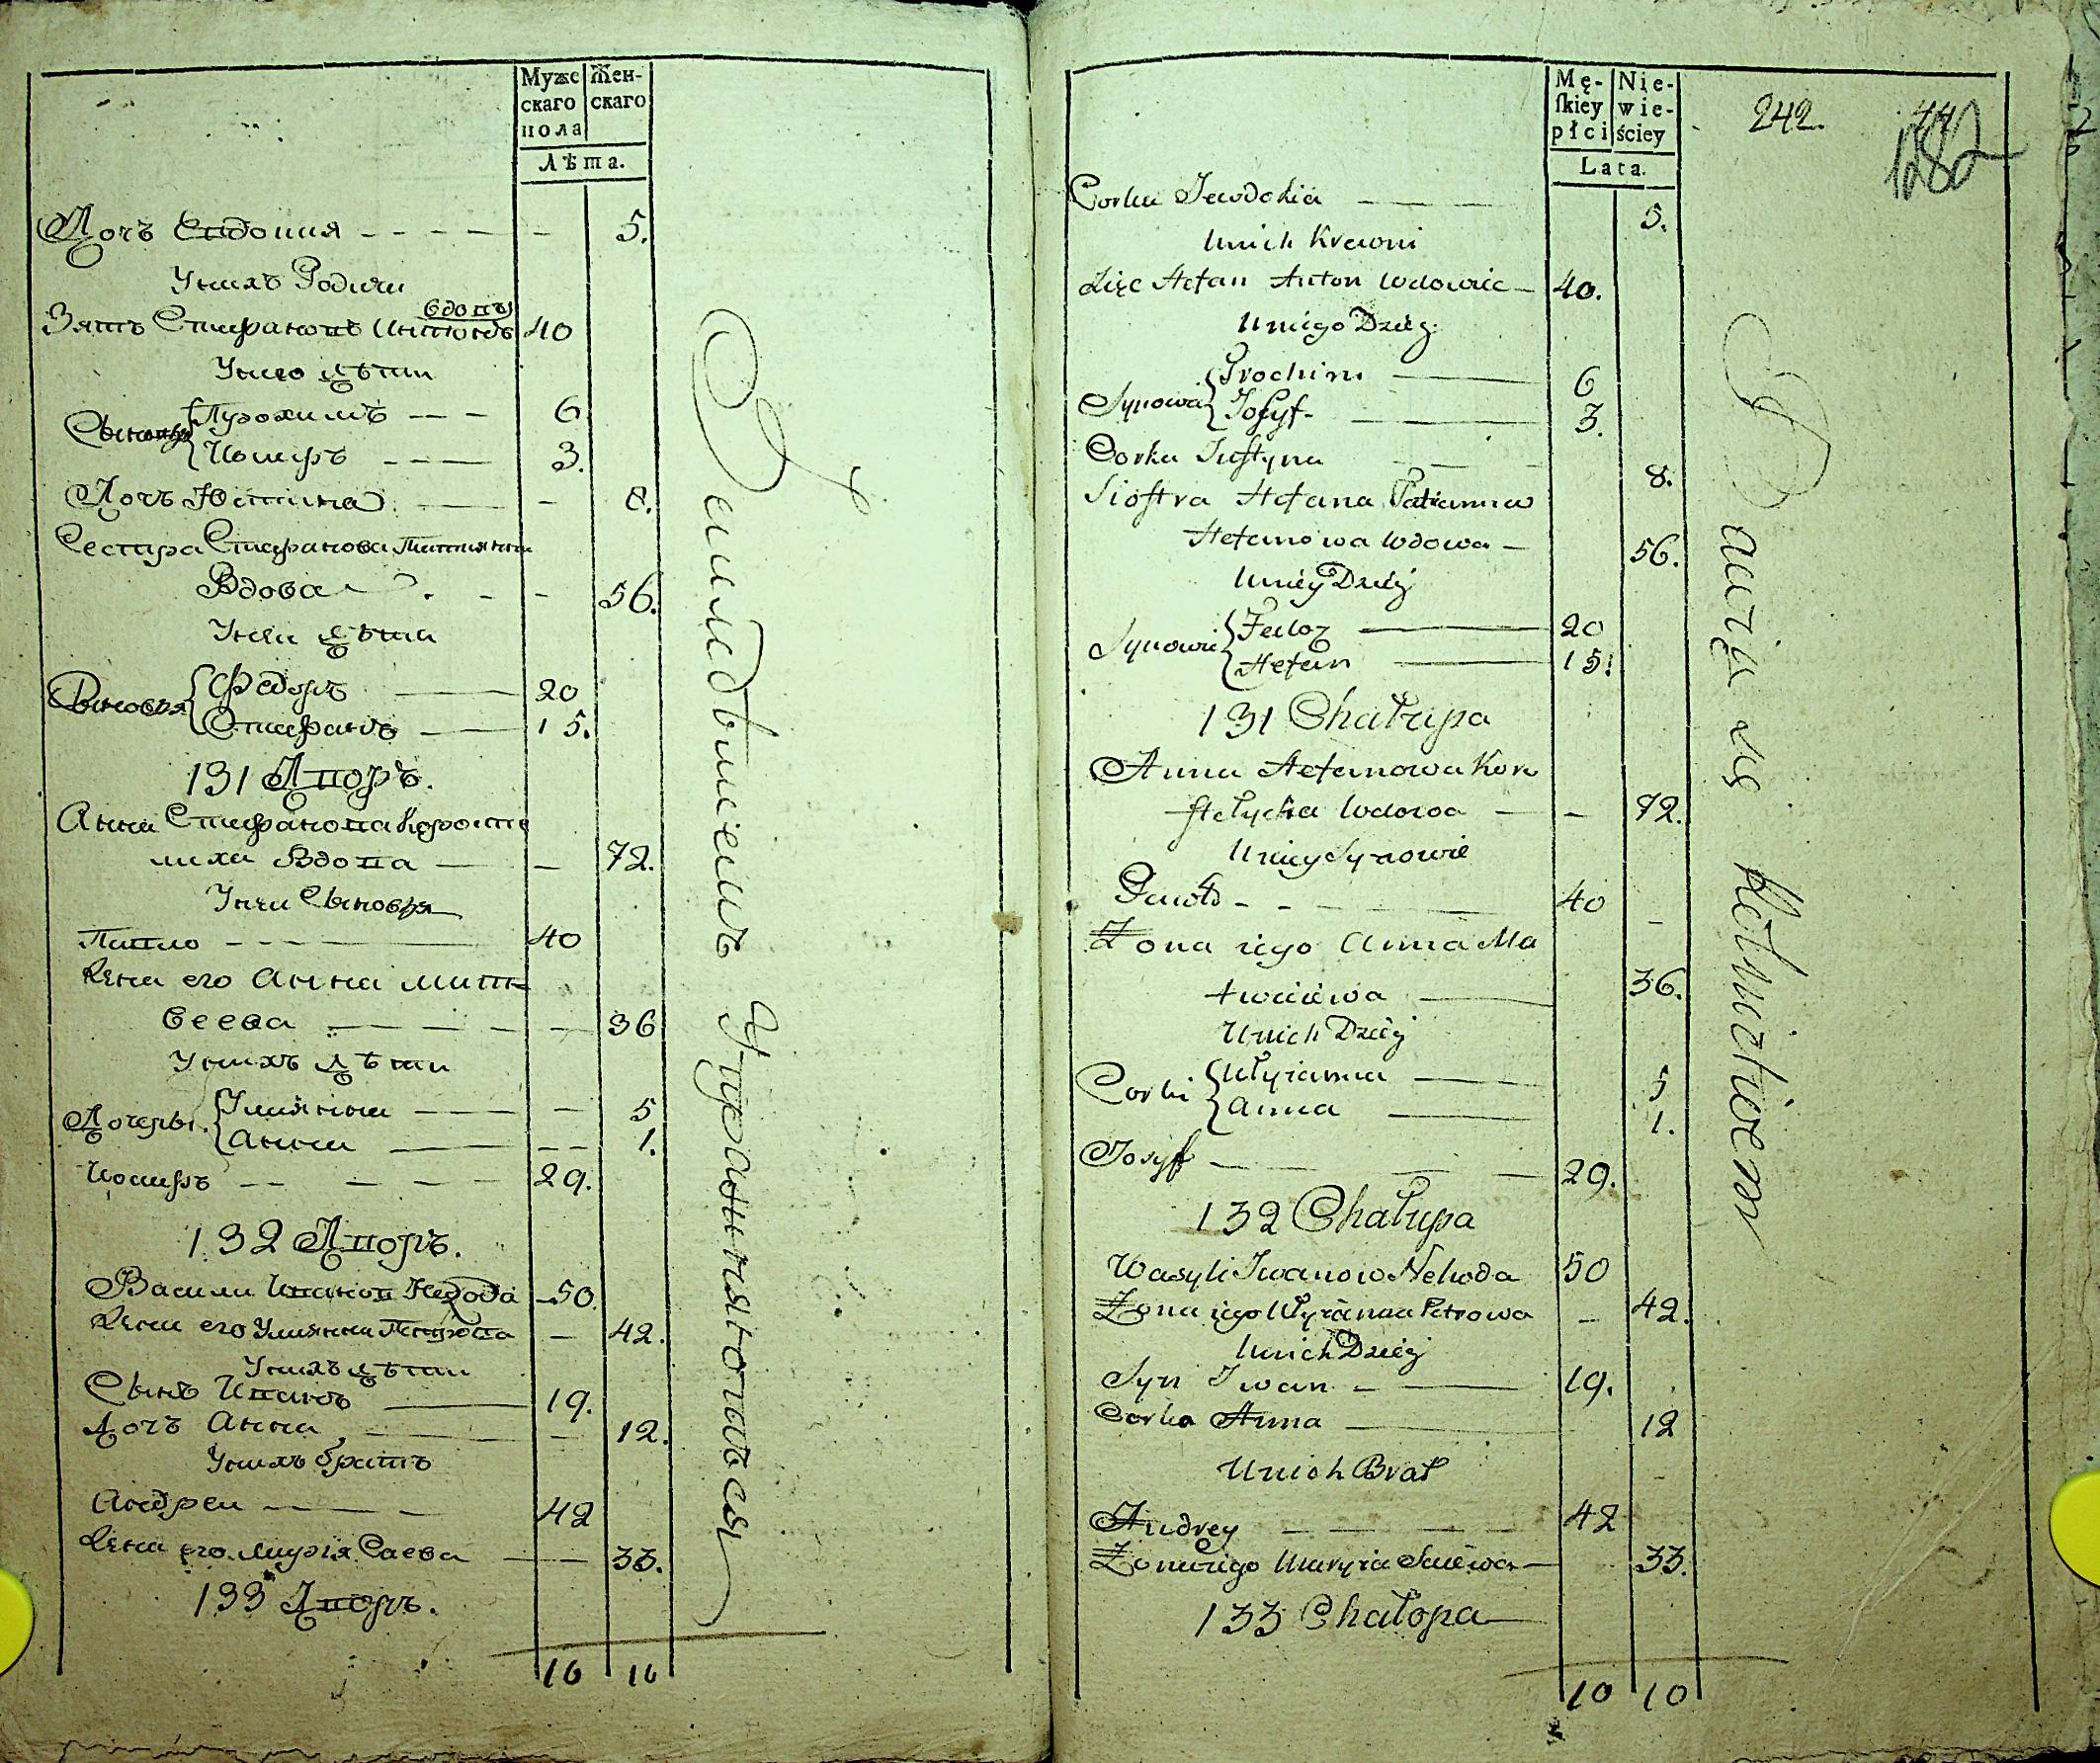 Муже
скаго
пола
Жен-
скаго
Лѣта.
Дочъ Евдокия - - - - - 5.
Унихъ Родичи
вдовъ
Зять Стефановъ Антонъ 40
Унего дѣти
Сыновья { Прохимъ - - - 6.
Иосифъ - - - 3.
Дочъ Юстина - 8.
Сестра Стефанова Татияна
Вдова - - - 56.
Унеи дѣти
Сыновья { Федоръ 20
Стефанъ 15.
131 Дворъ.
Анна Стефанова Корост
лиха Вдова — — 72.
Унеи Сыновья
Павло - - - 40
Жена его Анна Матъ
веева - - - 36
Унихъ дѣти
Дочеры { Улияна - - - 5
Анна - - 1.
Иосифъ - - - - - 29.
132 Дворъ.
Васили Иванов Негода 50.
Жена его Улияна Петрова — 42.
Унихъ дѣти
Сынъ Иванъ 19.
Дочъ Анна - 12.
Унихъ братъ
Андреи - - - 42
Жена его Мария Саева — 33.
133 Дворъ.
10 10
Римскаго Уніятского
Mę-
ſkiey
płci
Nie-
wie-
ściey
Lata.
242.
182
Corka Jewdokia — — — 5.
Unich Krewni
Zięć Stefan Anton Wdowiec — 40.
Uniego Dzieÿ
Synowie { Prochim — 6
Josyf — 3.
Corka Justyna 8.
Siostra Stefana Tatianna
Stefanowa Wdowa — 56.
Unieÿ Dzieÿ
Synowie { Fedoz — 20
Stefan — 15.
131 Chałupa
Anna Stefanowa Koro
stełycha Wdowa — — 72.
Unieÿ Synowie
Pawło - - — 40
Zona iego Anna Ma
twieiewa — 36.
Unich Dzieÿ
Corki { Ułyianna — 5
Anna — 1.
Josyf — — — 29.
132 Chałupa
Wasyli Iwanow Nehoda 50
Zona iego Ułyianna Petrowa — 42.
Unich Dzieÿ
Syn Iwan - — 19.
Corka Anna — 12
Unich Brat
Andrey — — — 42
Zona iego Maryia Saiewa — 33.
133 Chałupa
10 10